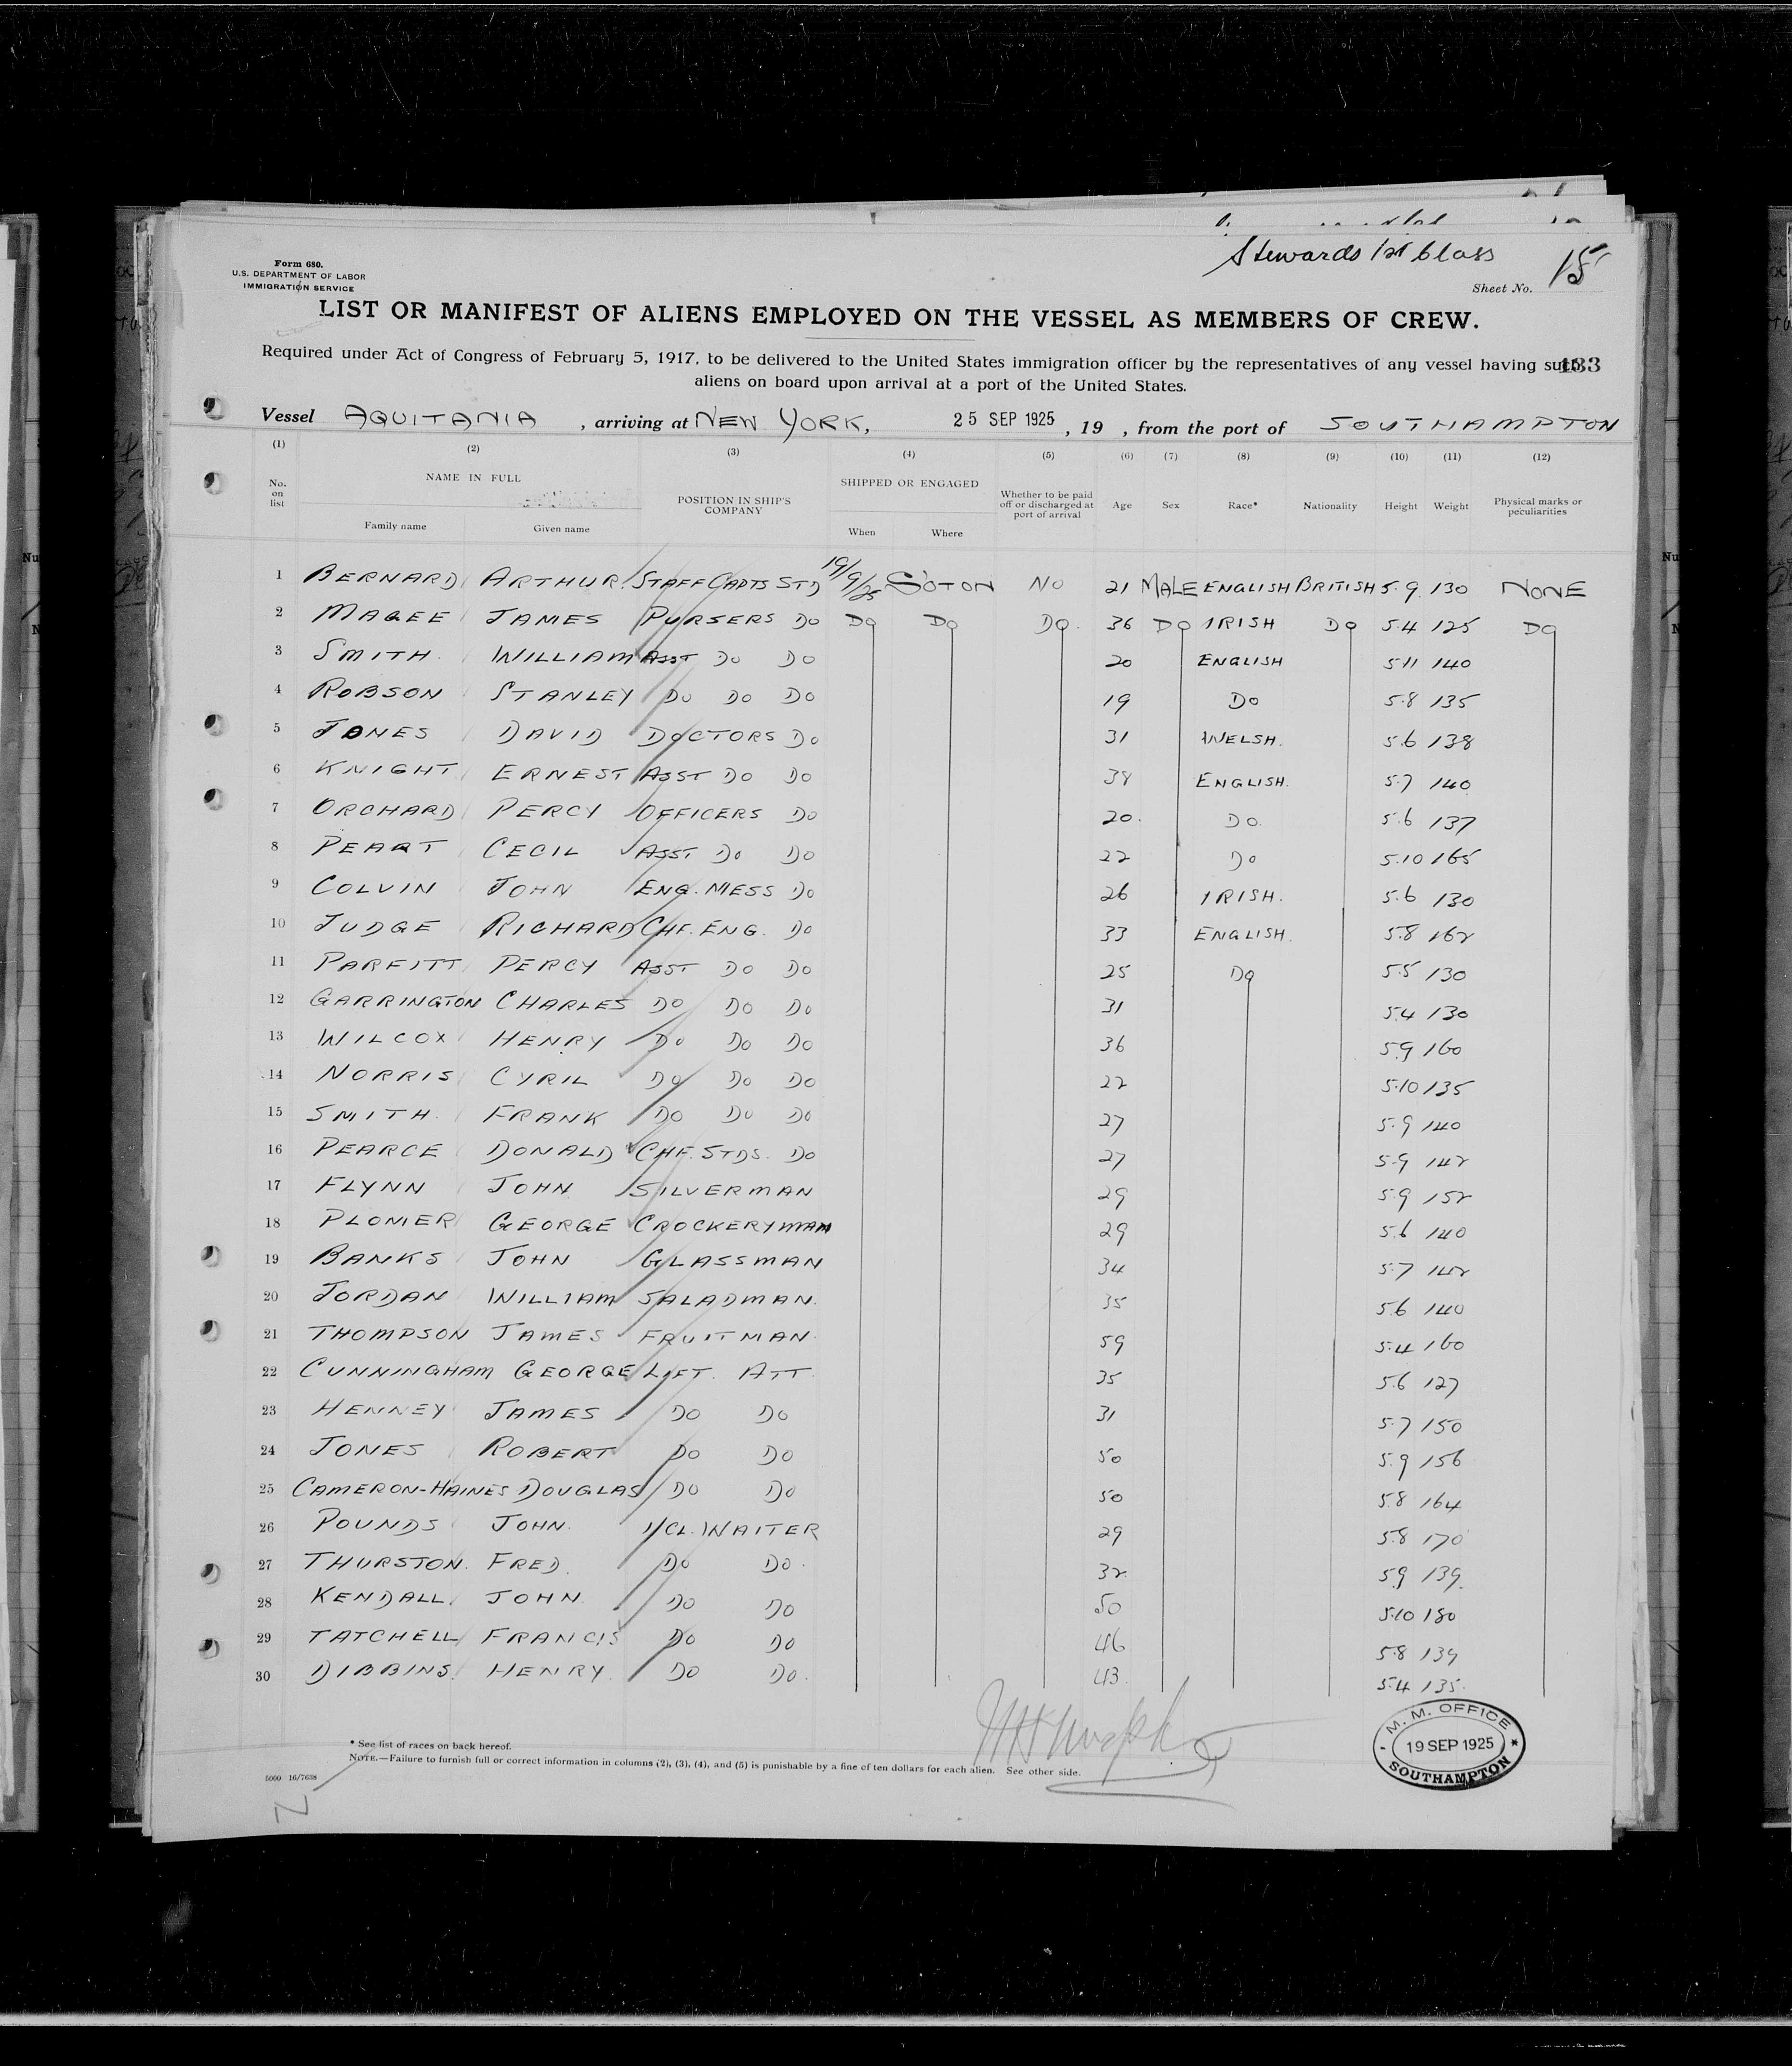 Stewards 1st Class
Form 680.
U.S. DEPARTMENT OF LABOR
IMMIGRATION SERVICE
Sheet No. 15
LIST OR MANIFEST OF ALIENS EMPLOYED ON THE VESSEL AS MEMBERS OF CREW.
Required under Act of Congress of February 5, 1917, to be delivered to the United States immigration officer by the representatives of any vessel having such
aliens on board upon arrival at a port of the United States.
Vessel AQUITANIA , arriving at NEW YORK, 25 SEP 1925 , 19 , from the port of SOUTHAMPTON
(1) (2) (3) (4) (5) (6) (7) (8) (9) (10) (11) (12)
No. on list NAME IN FULL Family name Given name POSITION IN SHIP'S COMPANY SHIPPED OR ENGAGED When Where Whether to be paid off or discharged at port of arrival Age Sex Race* Nationality Height Weight Physical marks or peculiarities
1 BERNARD ARTHUR STAFF CAPTS STD 19/9/25 S'OTON NO 21 MALE ENGLISH BRITISH 5.9 130 NONE
2 MAGEE JAMES PURSERS DO DO DO DO 36 DO IRISH DO 5.4 125 DO
3 SMITH WILLIAM ASST DO DO 20 ENGLISH 5.11 140
4 ROBSON STANLEY DO DO DO 19 DO 5.8 135
5 JONES DAVID DOCTORS DO 31 WELSH. 5.6 138
6 KNIGHT ERNEST ASST DO DO 38 ENGLISH. 5.7 140
7 ORCHARD PERCY OFFICERS DO 20 DO 5.6 137
8 PEART CECIL ASST DO DO 22 DO 5.10 165
9 COLVIN JOHN ENG. MESS DO 26 IRISH. 5.6 130
10 JUDGE RICHARD CHF. ENG. DO 33 ENGLISH. 5.8 162
11 PARFITT PERCY ASST DO DO 25 DO 5.5 130
12 GARRINGTON CHARLES DO DO DO 31 5.4 130
13 WILCOX HENRY DO DO DO 36 5.9 160
14 NORRIS CYRIL DO DO DO 22 5.10 135
15 SMITH FRANK DO DO DO 27 5.9 140
16 PEARCE DONALD CHF. STDS. DO 27 5.9 142
17 FLYNN JOHN SILVERMAN 29 5.9 152
18 PLOMER GEORGE CROCKERYMAN 29 5.6 140
19 BANKS JOHN GLASSMAN 34 5.7 142
20 JORDAN WILLIAM SALADMAN. 35 5.6 140
21 THOMPSON JAMES FRUITMAN 59 5.4 160
22 CUNNINGHAM GEORGE LIFT. ATT. 35 5.6 127
23 HENNEY JAMES DO DO 31 5.7 150
24 JONES ROBERT DO DO 50 5.9 156
25 CAMERON-HAINES DOUGLAS DO DO 50 5.8 164
26 POUNDS JOHN. 1/CL. WAITER 29 5.8 170
27 THURSTON. FRED. DO DO. 32 5.9 139.
28 KENDALL JOHN DO DO 50 5.10 180
29 TATCHELL FRANCIS DO DO 46 5.8 139
30 DIBBINS HENRY DO DO. 43 5.4 135.
* See list of races on back hereof.
NOTE.—Failure to furnish full or correct information in columns (2), (3), (4), and (5) is punishable by a fine of ten dollars for each alien. See other side.
5000 16/7638
M. M. OFFICE
19 SEP 1925
SOUTHAMPTON